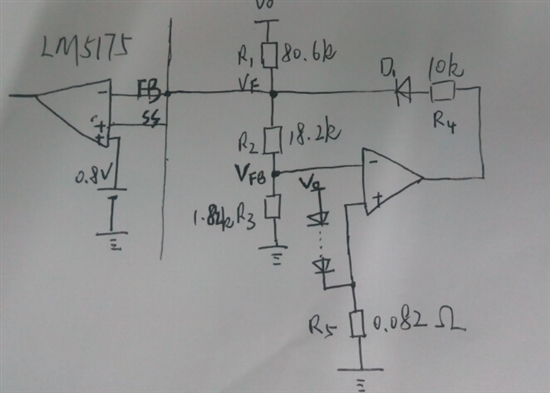 Vo
LM5175
R1 80.6k
D1
10k
FB
VF
R4
SS
R2 18.2k
VFB
-
Vo
0.8V
+
1.82k R3
R5
0.082 Ω